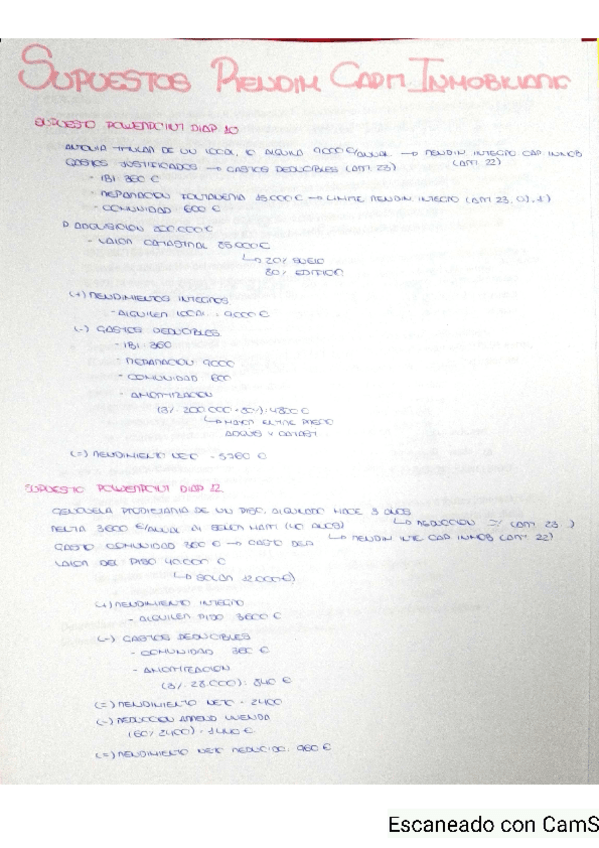 SUPUESTOS RENDIM CAPIT INMOBILIARIO
SUPUESTO POWERPOINT DIAP 10
ANTONIA TITULAR DE UN LOCAL, LO ALQUILA 9000 €/ANUAL → RENDIM INTEGRO CAP. INMOB
GASTOS JUSTIFICADOS → GASTOS DEDUCIBLES (ART. 23) (ART. 22)
- IBI: 360 €
- REPARACION FONTANERIA 15.000 € → LIMITE RENDIM INTEGRO (ART 23, a), 1)
- COMUNIDAD 600 €
P. ADQUISICION 200.000 €
- VALOR CATASTRAL 85.000 €
↳ 20% SUELO
80% EDIFICIO
(+) RENDIMIENTOS INTEGROS
- ALQUILER LOCAL: 9000 €
(-) GASTOS DEDUCIBLES
- IBI: 360
- REPARACION 9000
- COMUNIDAD 600
- AMORTIZACION
(3%. 200.000 · 80%): 4800 €
↳ MAYOR ENTRE PRECIO
ADQUIS Y CATAST.
(=) RENDIMIENTO NETO - 5760 €
SUPUESTO POWERPOINT DIAP 12
PROPIETARIA DE UN PISO. ALQUILADO HACE 3 AÑOS
RENTA 3600 €/ANUAL A (40 AÑOS) ↳ REDUCCION (ART 23 )
GASTO COMUNIDAD 360 € → GASTO DED ↳ RENDIM INTE CAP INMOB (ART 22)
VALOR DEL PISO 40.000 €
↳ SOLAR 12.000 €)
(+) RENDIMIENTO INTEGRO
- ALQUILER PISO 3600 €
(-) GASTOS DEDUCIBLES
- COMUNIDAD 360 €
- AMORTIZACION
(3%. 28.000): 840 €
(=) RENDIMIENTO NETO - 2400
(-) REDUCCION ARREND VIVIENDA
(60% 2400) - 1440 €
(=) RENDIMIENTO NETO REDUCIDO: 960 €
Escaneado con CamS